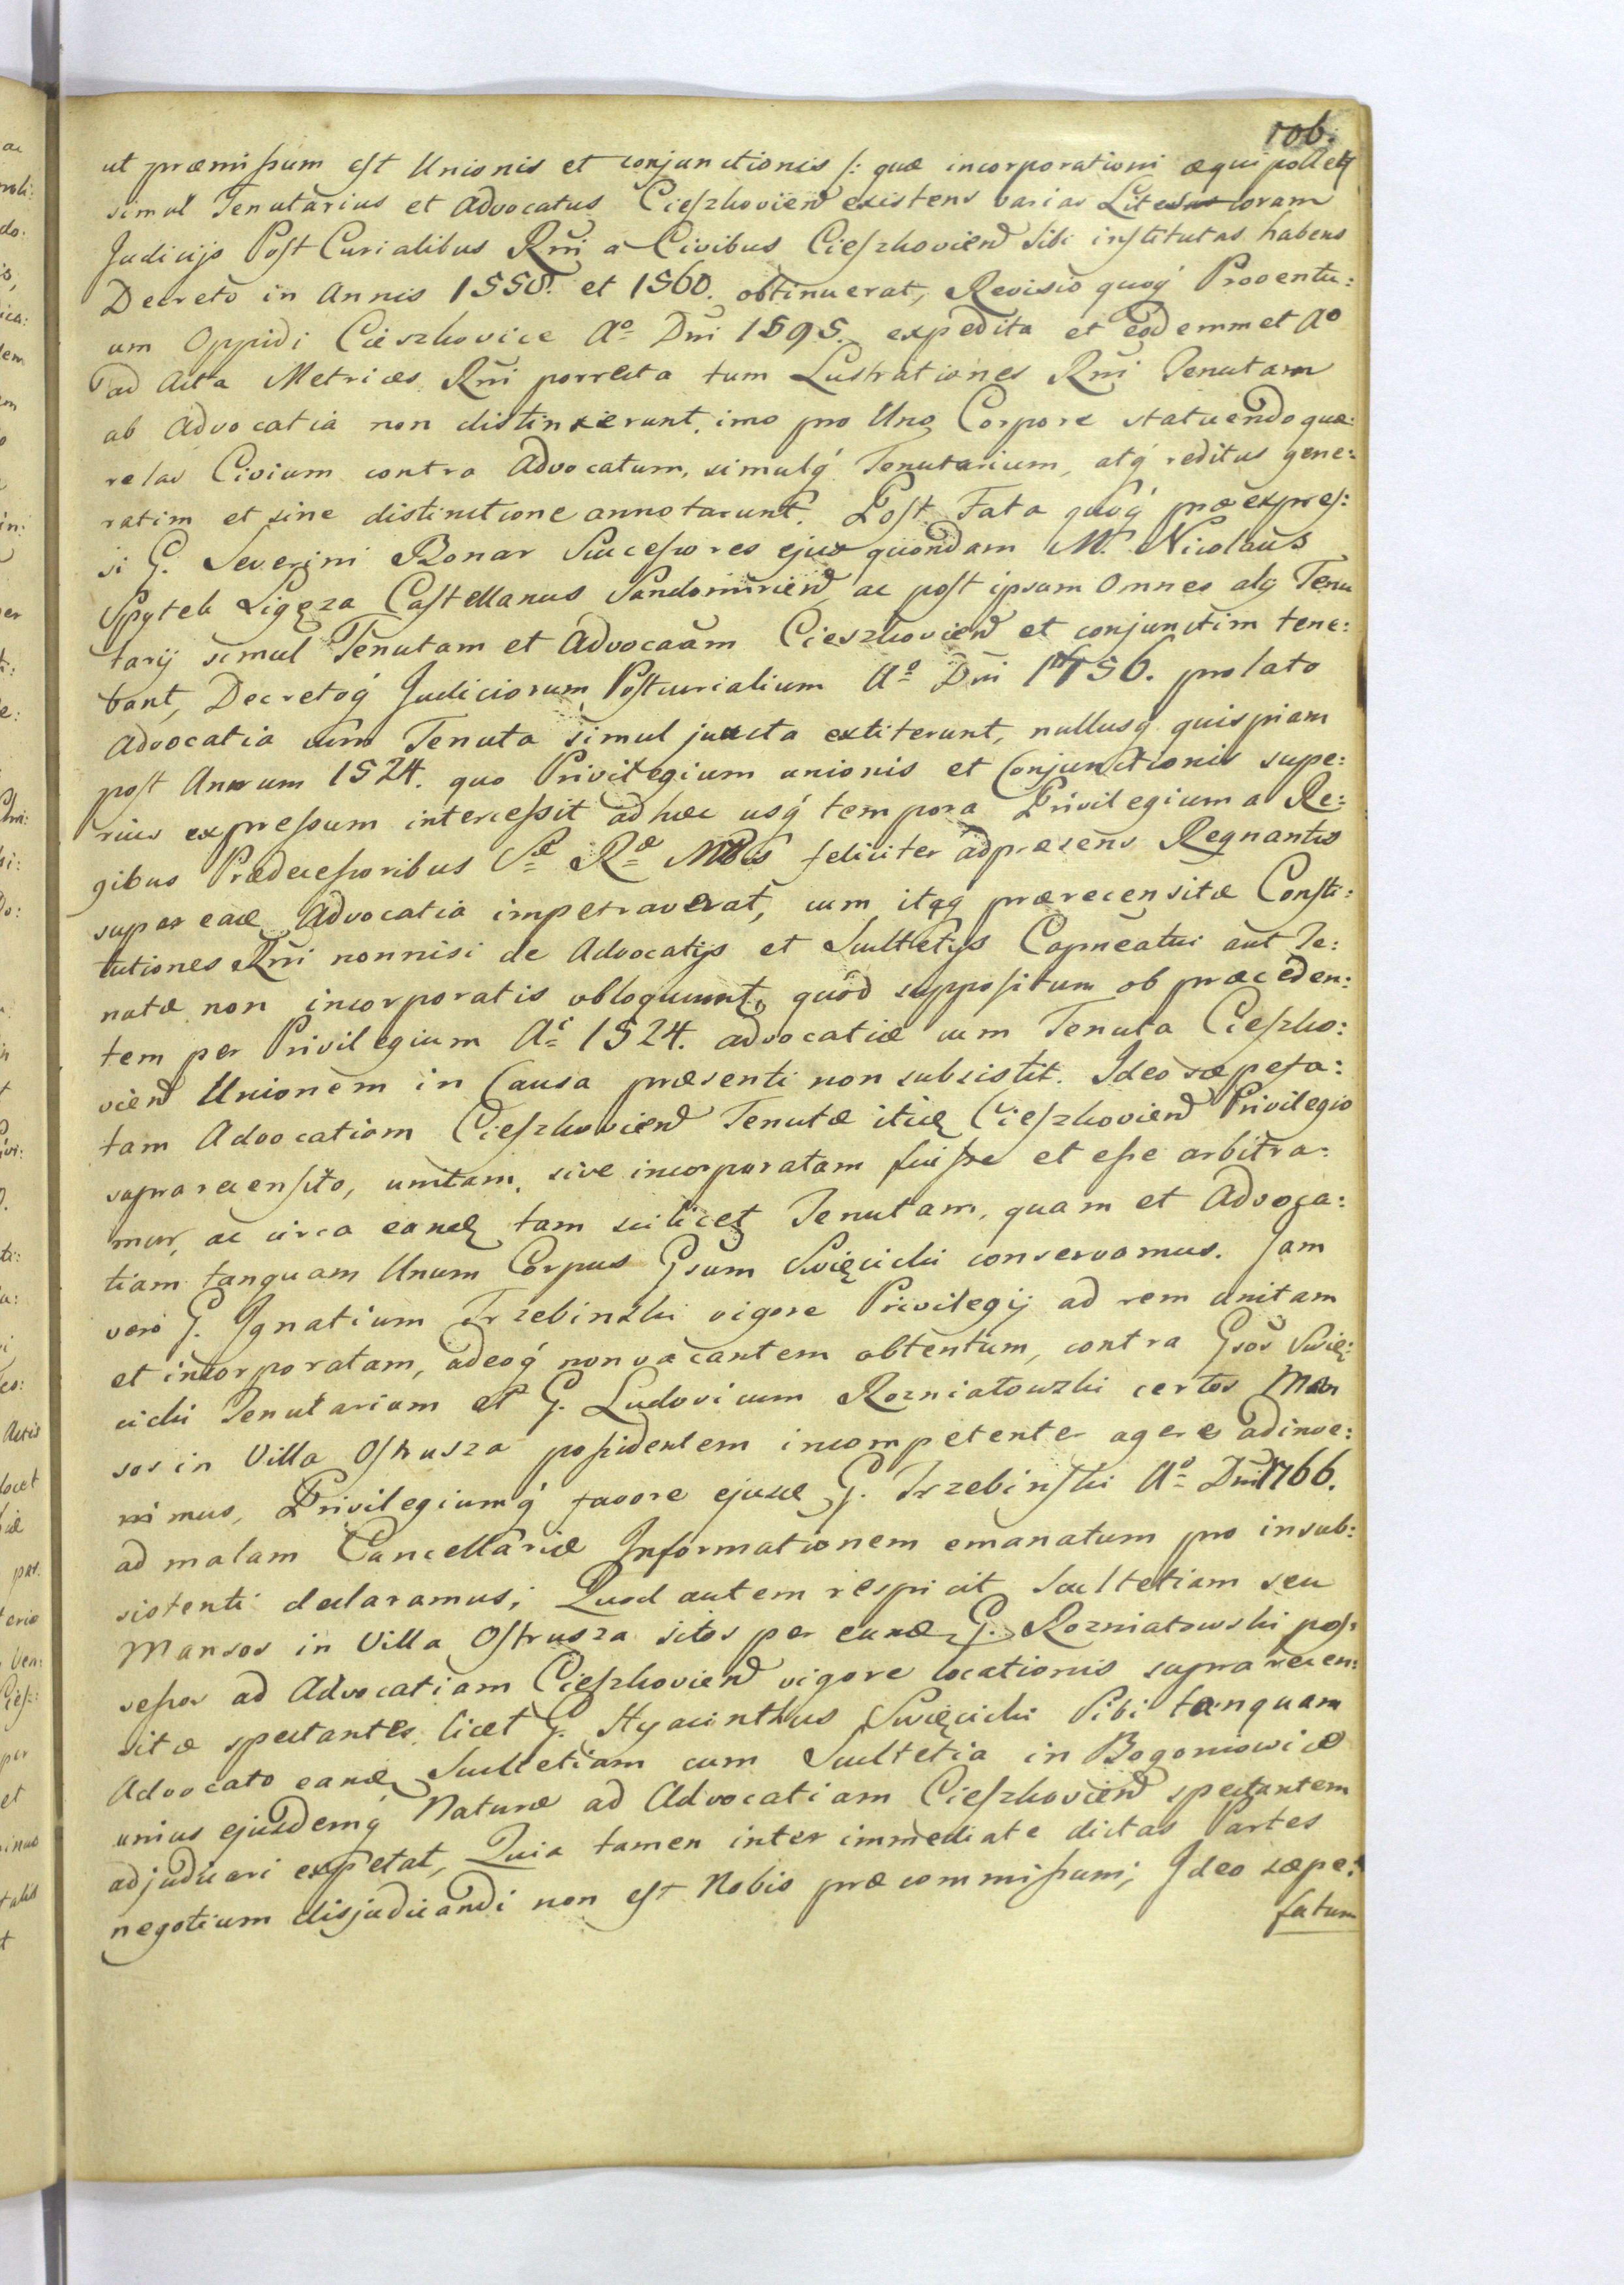 106.
ut præmissum est Unionis et conjunctionis /: quæ incorporationi æquipollet
simul Tenutarius et Advocatus Cieszkovien existens varias Lites coram
Judicijs Post Curialibus Rni a Civibus Cieszkovien sibi institutas habens
Decreto in Annis 1558. et 1560. obtinuerat, Revisio quoq́ Proventu:
um Oppidi Cieszkovice Ao Dni 1595. expedita et eodemmet Ao
ad Acta Metrices Rni porrecta tum Lustrationes Rni Tenutam
ab Advocatia non distinxerunt, imo pro Uno Corpore statuendo quæ:
relas Civium contra Advocatum, simulq́ Tenutarium, atq́ reditus gene:
ratim et sine distinctione annotarunt. Post Fata quoq́ præexpres:
si G. Severini Bonar Successores ejus quondam M. Nicolaus
Spytek Ligęza Castellanus Sandomirien, ac post ipsum Omnes alij Tenu
tarij simul Tenutam et Advocaãm Cieszkovien et conjunctim tene:
bant, Decretoq́ Judiciorum Postcurialium Ao Dni 1756. prolato
Advocatia cum Tenuta simul juncta extiterunt, nullusq́ quispiam
post Annum 1524. quo Privilegium unionis et Conjunctionis supe:
rius expressum intercessit ad hæc usq́ tempora Privilegium a Re:
gibus Prædecessoribus Sæ Ræ Mtis feliciter adpræsens Regnantis
super eaē Advocatia impetraverat, cum itaq́ prærecensitæ Consti:
tutiones Rni nonnisi de Advocatijs et Scultetijs Capneatui aut Te:
nutæ non incorporatis obloquunt, quod suppositum ob præceden:
tem per Privilegium Ai 1524. advocatiæ cum Tenuta Cieszko:
vien Unionem in Causa præsenti non subsistit. Ideo sæpefa:
tam Advocatiam Cieszkovien Tenutæ itiē Cieszkovien Privilegio
suprarecensito, unitam, sive incorporatam fuisse et esse arbitra:
mur, ac circa eandē tam scilicet Tenutam, quam et Advoca:
tiam tanquam Unum Corpus Gsum Swięcicki conservamus. Jam
vero G. Ignatium Trzebinski vigore Privilegij ad rem unitam
et incorporatam, adeoq́ non vacantem obtentum, contra Gsos Swię:
cicki Tenutarium et G. Ludovicum Rozniatowski certos Man
sos in Villa Ostrusza possidentem incompetenter agere adinve:
nimus, Privilegiumq́ favore ejusdē G. Trzebinski Ao Dni 1766.
ad malam Cancellariæ Informationem emanatum pro insub:
sistenti declaramus; Quod autem respicit Scultetiam seu
Mansos in Villa Ostrusza sitos per eundē G. Rozniatowski pos:
sessos ad Advocatiam Cieszkovien vigore locationis suprarecen:
sitæ spectantes, licet G. Hyacinthus Swięcicki Sibi tanquam
Advocato eandē Scultetiam cum Scultetia in Bogoniowice
unius ejusdemq́ Naturæ ad Advocatiam Cieszkovien spectantem
adjudicari expetat, Quia tamen inter immediate dictas Partes
negotium disjudicandi non est Nobis præcommissum; Ideo sæpe:
fatum